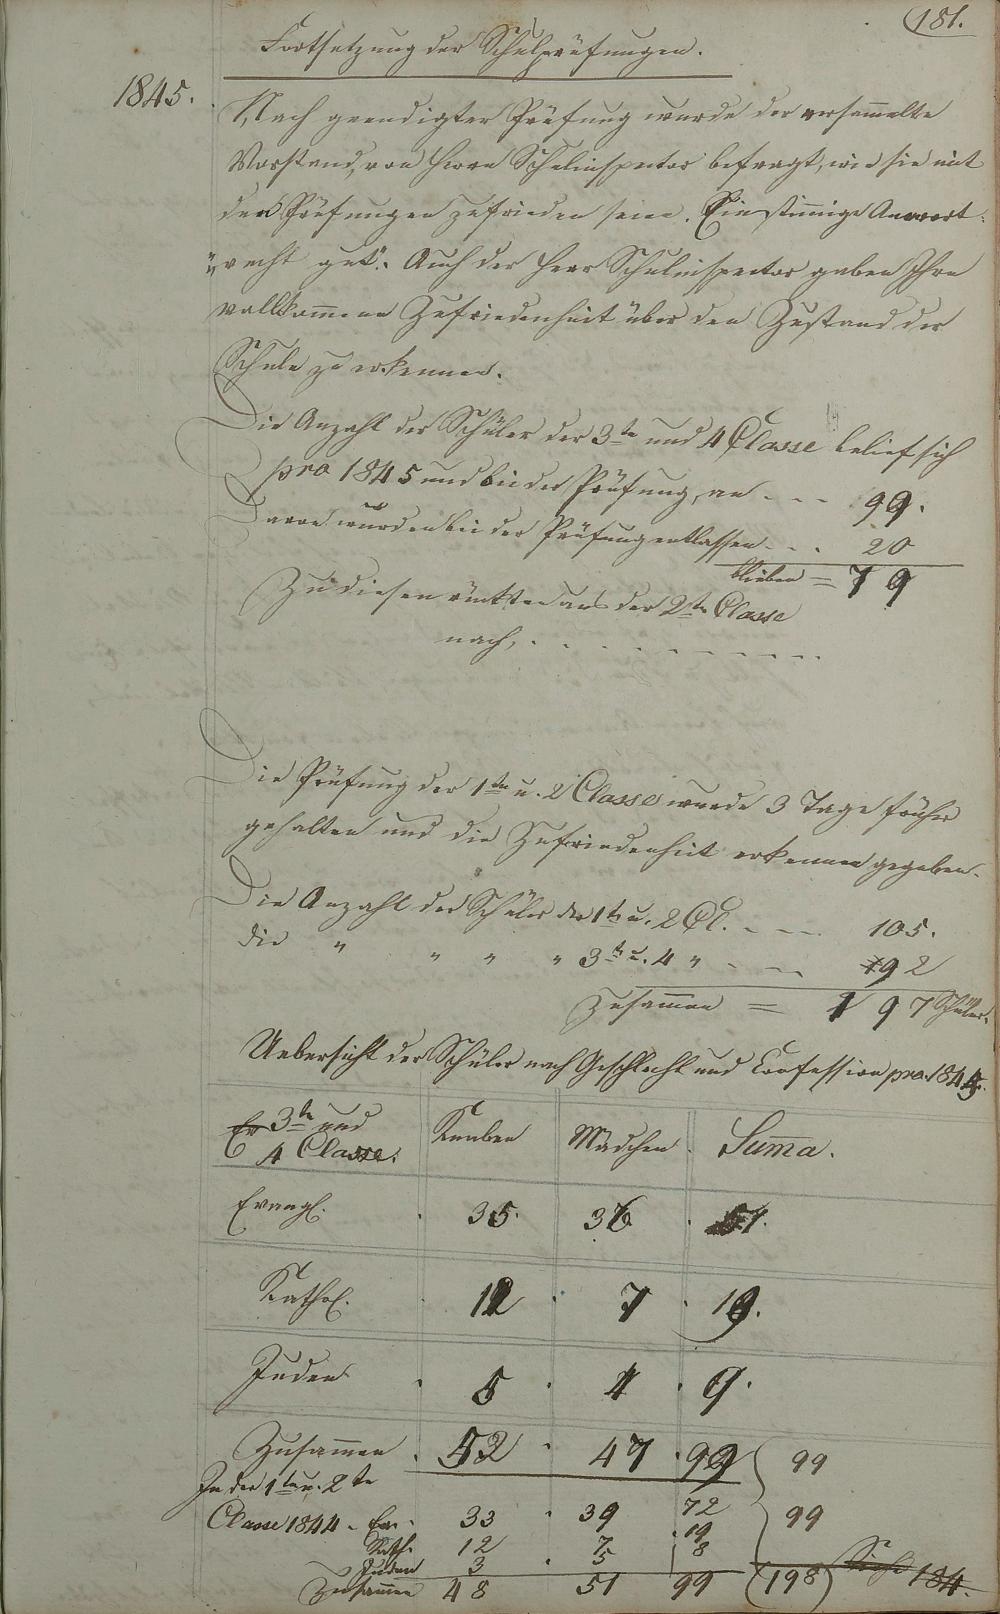 181.
Fortsetzung der Schulprüfungen.
1845.
Nach geendigter Prüfung wurde der versam̅elte
Vorstand, von Herrn Schulinspector befragt, wie sie mit
den Prüfungen zufrieden seien. Einstim̅ige Anwort:
„recht gut“. Auch der Herr Schulinspector gaben Ihre
vollkom̅ene Zufriedenheit über den Zustand der
Schule zu erkennen.
Die Anzahl der Schüler der 3te und 4 Classe belief sich
pro 1845 und bei der Prüfung, an - - - 99.
Davon wurden bei der Prüfung entlassen - - . 20
blieben = 79
Zu diesen rückten aus der 2te Classe
nach, . - - - - - - - - -
Die Prüfung der 1ten u. 2 Classe wurde 3 Tage früher
gehalten und die Zufriedenheit erkennen gegeben.
Die Anzahl der Schüler der 1te u. 2 Cl. - - - 105.
die " " " " 3te u. 4 " - - - 92
Zusam̅en = 197 Schüler.
Uebersicht der Schüler nach Geschlecht und Confession pro. 1845.
3te und
4 Classe. Knaben Mädchen. Sum̅a.
Evangl. 35. 36
Kathol. 12 7 19.
Juden 5 4 9.
Zusam̅en 52 47 99 99
In der 1te u. 2te
Classe 1844 - Ev. 33 39 72 99
Kath. 12 7 19
Juden 3 5 8
Zusam̅en 48 51 99 198 Siehe 184.